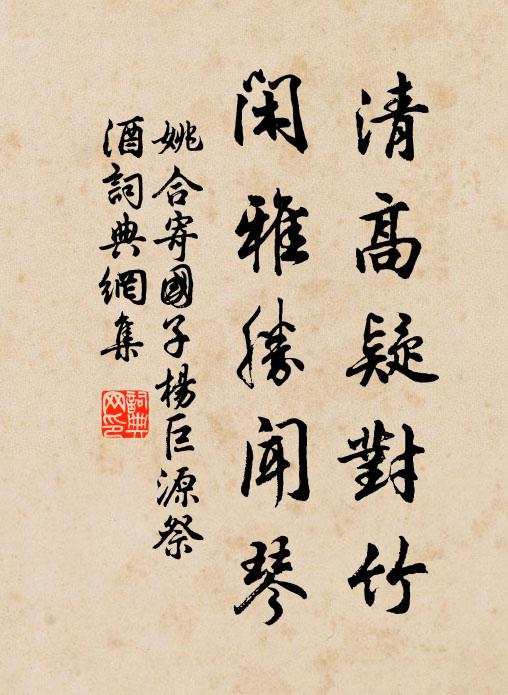 清高疑對竹
閑雅勝聞琴
姚合寄國子楊巨源祭
酒詞典網集
詞典
网印